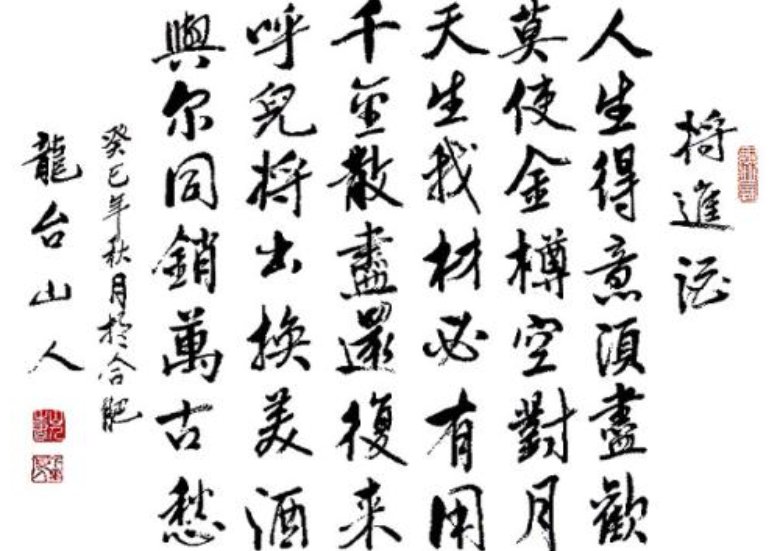 將進酒
人生得意須盡歡
莫使金樽空對月
天生我材必有用
千金散盡還復来
呼兒将出換美酒
與尔同銷萬古愁
癸巳年秋月於合肥
龍台山人